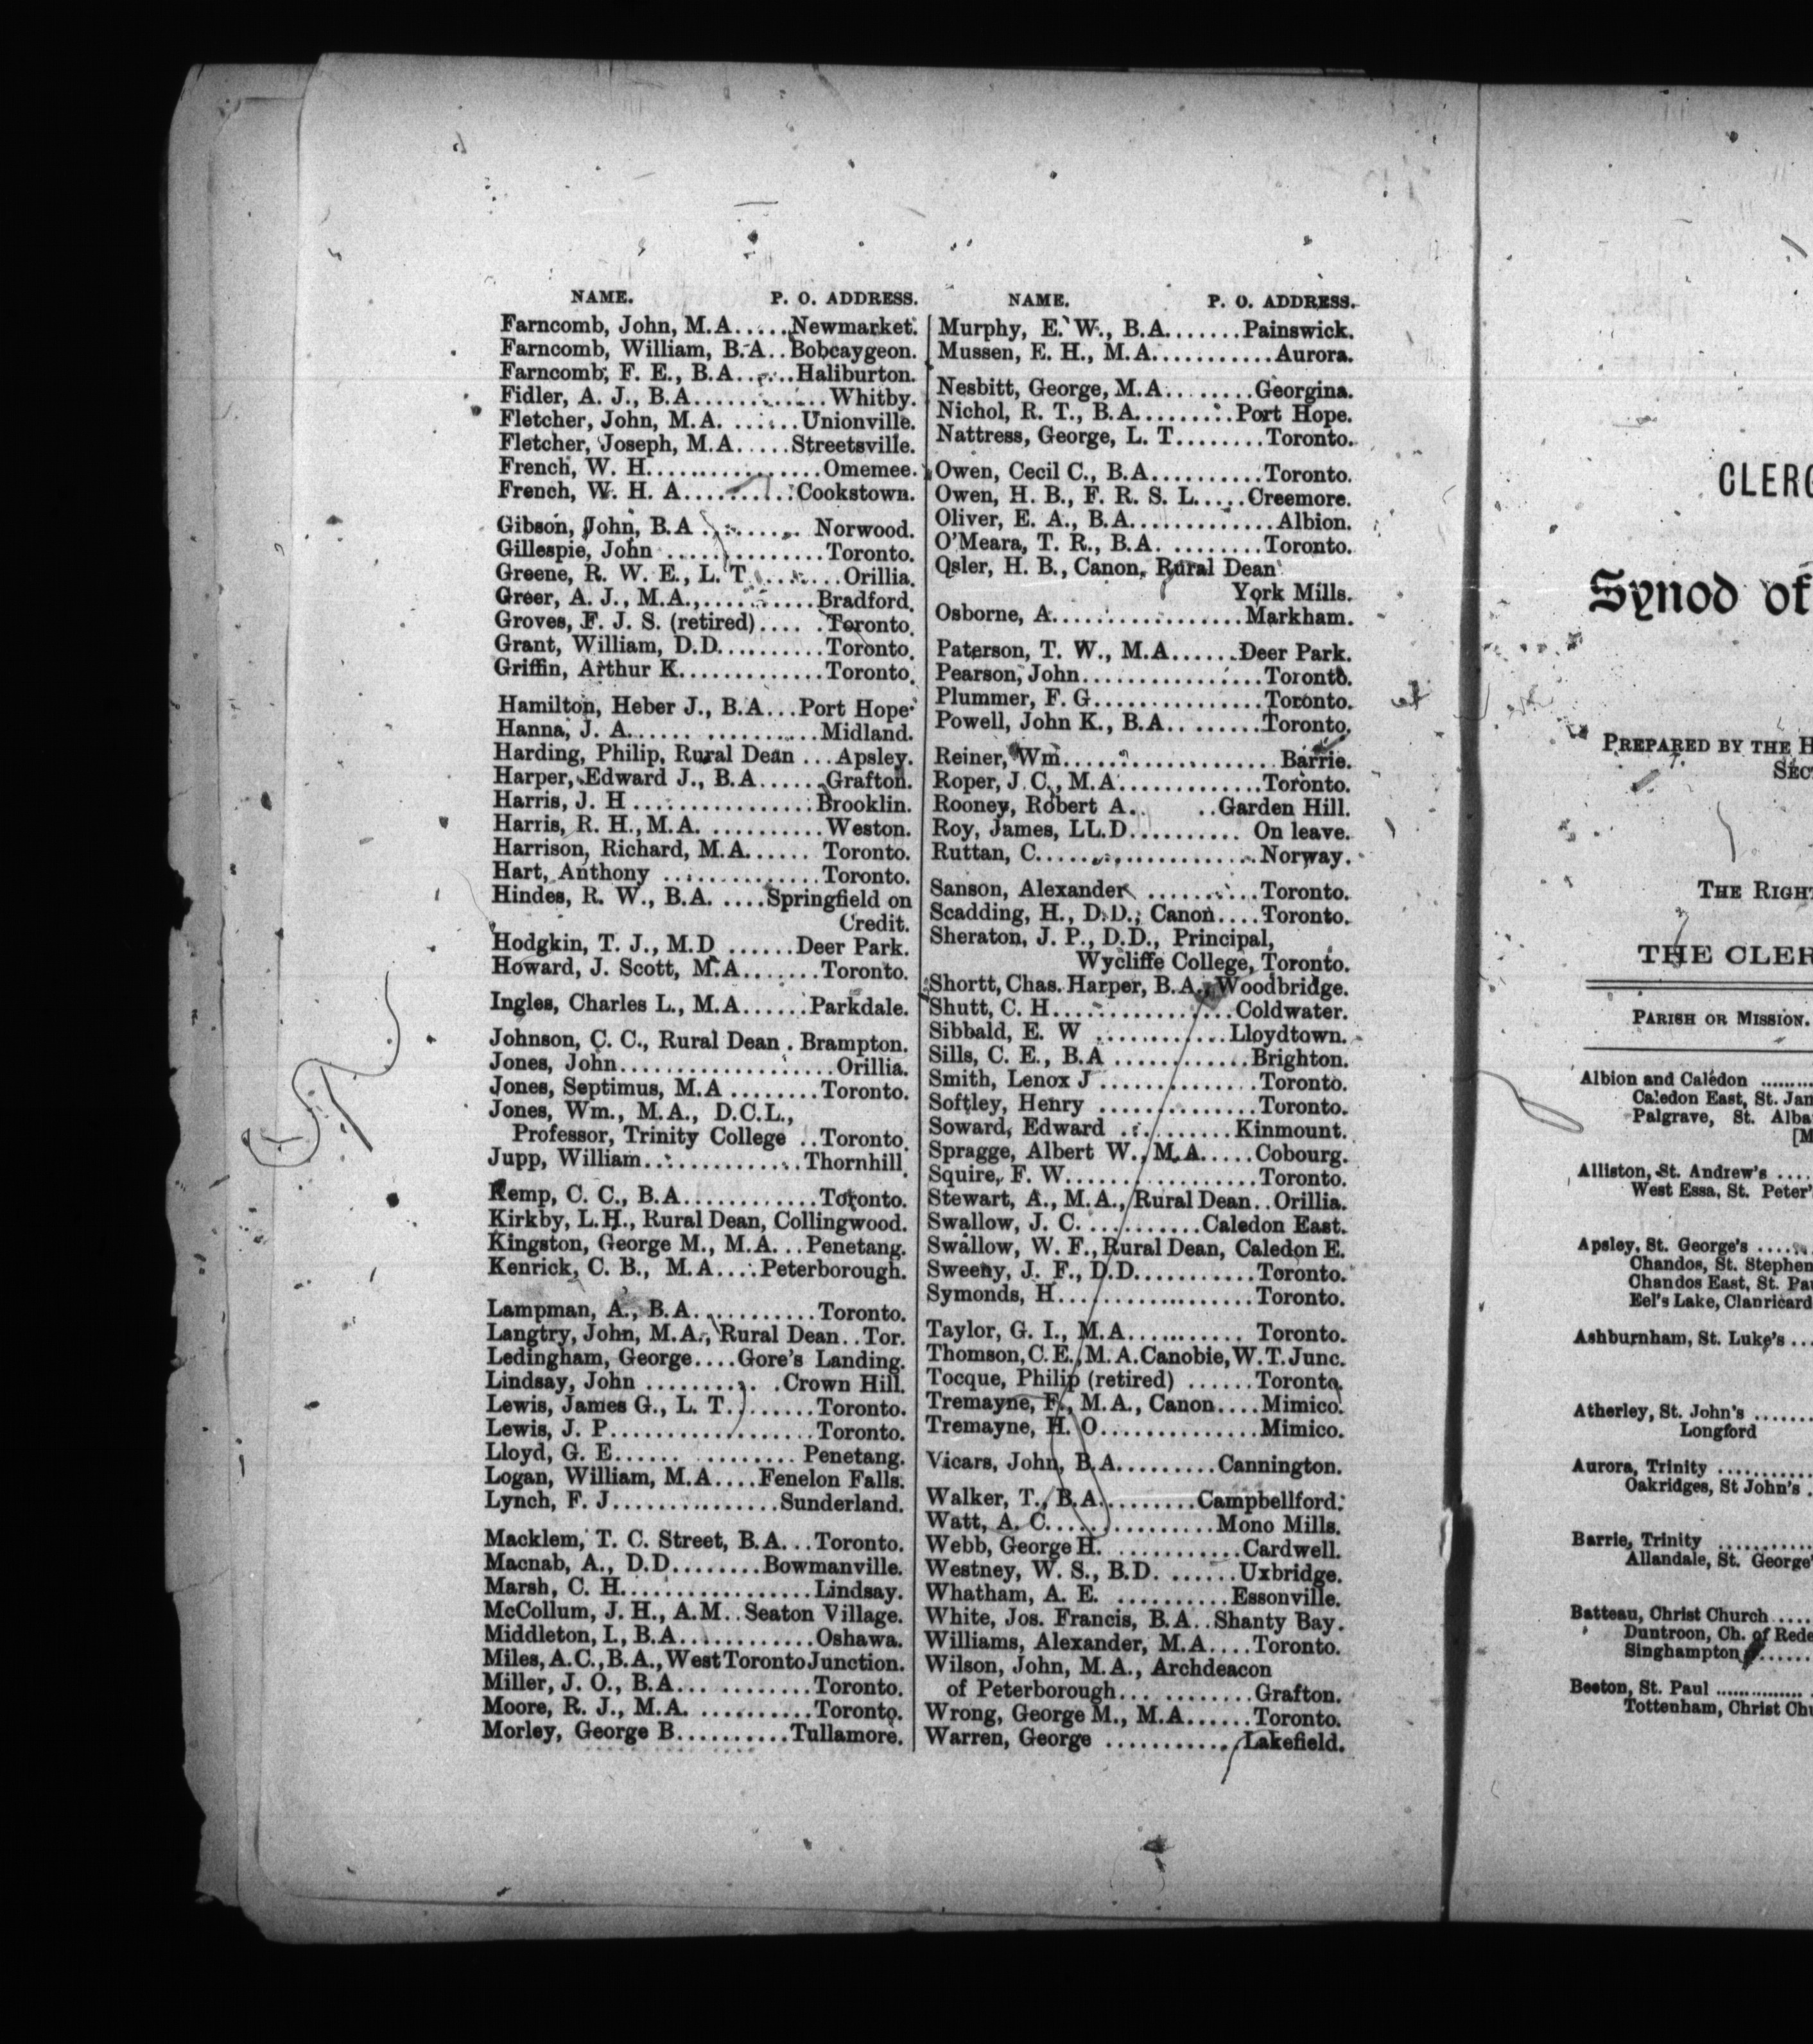 NAME. P. O. ADDRESS.
Farncomb, John, M.A.....Newmarket.
Farncomb, William, B.A..Bobcaygeon.
Farncomb, F. E., B.A......Haliburton.
Fidler, A. J., B.A............Whitby.
Fletcher, John, M.A. ......Unionville.
Fletcher, Joseph, M.A.....Streetsville.
French, W. H................Omemee.
French, W. H. A..........Cookstown.
Gibson, John, B.A ......... Norwood.
Gillespie, John ..............Toronto.
Greene, R. W. E., L. T ........Orillia.
Greer, A. J., M.A.,..........Bradford.
Groves, F. J. S. (retired).... .Toronto.
Grant, William, D.D..........Toronto.
Griffin, Arthur K.............Toronto.
Hamilton, Heber J., B.A...Port Hope.
Hanna, J. A...... ...........Midland.
Harding, Philip, Rural Dean ...Apsley.
Harper, Edward J., B.A......Grafton.
Harris, J. H ................Brooklin.
Harris, R. H., M.A. ..........Weston.
Harrison, Richard, M.A...... Toronto.
Hart, Anthony ..............Toronto.
Hindes, R. W., B.A. ....Springfield on
Credit.
Hodgkin, T. J., M.D ......Deer Park.
Howard, J. Scott, M.A.......Toronto.
Ingles, Charles L., M.A......Parkdale.
Johnson, C. C., Rural Dean . Brampton.
Jones, John...................Orillia.
Jones, Septimus, M.A ........Toronto.
Jones, Wm., M.A., D.C.L.,
Professor, Trinity College ..Toronto.
Jupp, William..............Thornhill.
Kemp, C. C., B.A............Toronto.
Kirkby, L.H., Rural Dean, Collingwood.
Kingston, George M., M.A...Penetang.
Kenrick, C. B., M.A....Peterborough.
Lampman, A., B.A...........Toronto.
Langtry, John, M.A., Rural Dean..Tor.
Ledingham, George....Gore's Landing.
Lindsay, John ........... .Crown Hill.
Lewis, James G., L. T.........Toronto.
Lewis, J. P...................Toronto.
Lloyd, G. E...... ......... Penetang.
Logan, William, M.A....Fenelon Falls.
Lynch, F. J................Sunderland.
Macklem, T. C. Street, B.A...Toronto.
Macnab, A., D.D........Bowmanville.
Marsh, C. H..................Lindsay.
McCollum, J. H., A.M..Seaton Village.
Middleton, I., B.A............Oshawa.
Miles, A.C., B.A., West Toronto Junction.
Miller, J. O., B.A... .........Toronto.
Moore, R. J., M.A. ...........Toronto.
Morley, George B..........Tullamore.
NAME. P. O. ADDRESS.
Murphy, E. W., B.A.......Painswick.
Mussen, E. H., M.A...........Aurora.
Nesbitt, George, M.A........Georgina.
Nichol, R. T., B.A.........Port Hope.
Nattress, George, L. T........Toronto.
Owen, Cecil C., B.A..........Toronto.
Owen, H. B., F. R. S. L.....Creemore.
Oliver, E. A., B.A.............Albion.
O'Meara, T. R., B.A. ........Toronto.
Osler, H. B., Canon, Rural Dean
York Mills.
Osborne, A..................Markham.
Paterson, T. W., M.A......Deer Park.
Pearson, John................Toronto.
Plummer, F. G...............Toronto.
Powell, John K., B.A.. ......Toronto.
Reiner, Wm................... Barrie.
Roper, J. C., M.A.............Toronto.
Rooney, Robert A.. ..Garden Hill.
Roy, James, LL.D.......... On leave.
Ruttan, C....................Norway.
Sanson, Alexander ..........Toronto.
Scadding, H., D.D., Canon....Toronto.
Sheraton, J. P., D.D., Principal,
Wycliffe College, Toronto.
Shortt, Chas. Harper, B.A., Woodbridge.
Shutt, C. H.................Coldwater.
Sibbald, E. W ............Lloydtown.
Sills, C. E., B.A ............Brighton.
Smith, Lenox J ..............Toronto.
Softley, Henry ..............Toronto.
Soward, Edward ..........Kinmount.
Spragge, Albert W., M.A.....Cobourg.
Squire, F. W.................Toronto.
Stewart, A., M.A., Rural Dean..Orillia.
Swallow, J. C. ..........Caledon East.
Swallow, W. F., Rural Dean, Caledon E.
Sweeny, J. F., D.D...........Toronto.
Symonds, H..................Toronto.
Taylor, G. I., M.A........... Toronto.
Thomson, C. E., M.A. Canobie, W. T. Junc.
Tocque, Philip (retired) ......Toronto.
Tremayne, F., M.A., Canon....Mimico.
Tremayne, H. O..............Mimico.
Vicars, John, B.A.........Cannington.
Walker, T., B.A..........Campbellford.
Watt, A. C................Mono Mills.
Webb, George H. ...........Cardwell.
Westney, W. S., B.D. ......Uxbridge.
Whatham, A. E. ..........Essonville.
White, Jos. Francis, B.A..Shanty Bay.
Williams, Alexander, M.A....Toronto.
Wilson, John, M.A., Archdeacon
of Peterborough... ........Grafton.
Wrong, George M., M.A......Toronto.
Warren, George ............Lakefield.
CLERG
Synod of
PREPARED BY THE H
SEC
THE RIGHT
THE CLER
PARISH OR MISSION.
Albion and Caledon ..........
Caledon East, St. Jam
Palgrave, St. Alba
[M
Alliston, St. Andrew's ....
West Essa, St. Peter'
Apsley, St. George's ......
Chandos, St. Stephen
Chandos East, St. Pau
Eel's Lake, Clanricard
Ashburnham, St. Luke's ...
Atherley, St. John's ........
Longford
Aurora, Trinity ............
Oakridges, St John's .
Barrie, Trinity ............
Allandale, St. George'
Batteau, Christ Church ....
Duntroon, Ch. of Rede
Singhampton ........
Beeton, St. Paul ...............
Tottenham, Christ Chu